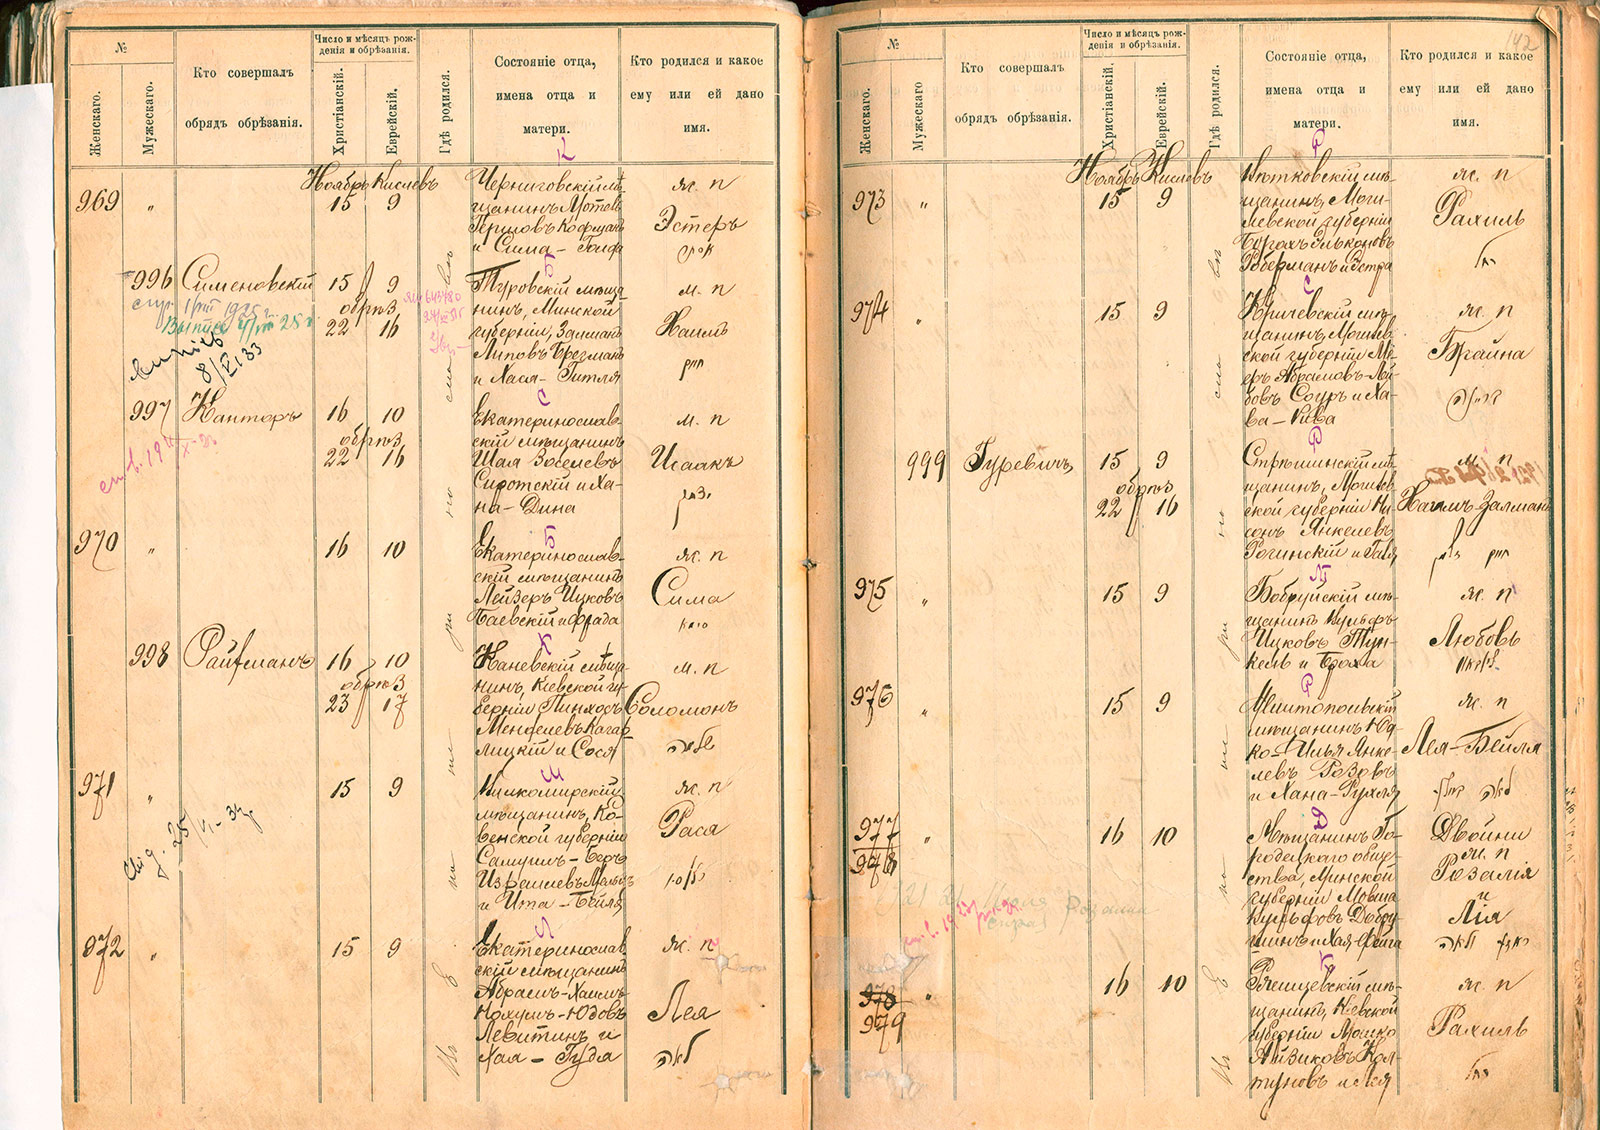 №
Женскаго.
Мужескаго.
Кто совершалъ
обрядъ обрѣзанія.
Число и мѣсяцъ рож-
денія и обрѣзанія.
Христіанскій.
Еврейскій.
Гдѣ родился.
Состояніе отца,
имена отца и
матери.
Кто родился и какое
ему или ей дано
имя.
К
Ноябрь Кислевъ
969 „ 15 9
Черниговскій мѣ-
щанинъ Мотель
и Сима –
ж. п
Эстеръ
Б
996 Сименовскій 15 9
обрѣз
22 16
Туровскій мѣща-
нинъ, Минской
губерніи, Залманъ
Липовъ Брезманъ
и Хася – Гитля
м. п
Хаимъ
חיים
8/VI 33
С
997 Канторъ 16 10
обрѣз
22 16
Екатеринослав-
скій мѣщанинъ
Шая Іоселевъ
Сиротскій и Ха-
на – Дина
м. п
Исаакъ
Б
970 „ 16 10
Екатеринослав-
скій мѣщанинъ
Лейзеръ Ицковъ
Баевскій и Фрада
ж. п
Сима
סימא
К
998 Райтманъ 16 10
обрѣз
23 17
Каневскій мѣща-
нинъ, Кіевской гу-
берніи Пинхосъ
Менделевъ Кагар-
лицкій и Сося
м. п
Соломонъ
שלמה
Ш
971 „ 15 9
Вилкомирскій
мѣщанинъ, Ко-
венской губерніи
Самуилъ – Беръ
и Ита – Бейля
ж. п
Рася
Л
972 „ 15 9
Екатеринослав
скій мѣщанинъ
Абрамъ – Хаимъ –
Нохумъ – Юдовъ
Левитинъ и
Хая – Гуда
ж. п
Лея
לאה
142
№
Женскаго.
Мужескаго
Кто совершалъ
обрядъ обрѣзанія.
Число и мѣсяцъ рож-
денія и обрѣзанія.
Христіанскій.
Еврейскій.
Гдѣ родился.
Состояніе отца,
имена отца и
матери.
Кто родился и какое
ему или ей дано
имя.
Р
Ноябрь Кислевъ
973 „ 15 9
щанинъ, Моги-
левской губерніи
Борахъ Эльконовъ
Роберманъ и Эстра
ж. п
Рахиль
רחל
С
974 „ 15 9
Кричевскій мѣ-
щанинъ, Могилев
ской губерніи Ме-
еръ Абрамовъ – Лей-
бовъ Соуръ и Ха-
ва – Рива
ж. п
Брайна
Р
999 Гуревичъ 15 9
обрѣз
22 16
Стрѣшинскій мѣ
щанинъ, Могилев
ской губерніи Ни-
сонъ Янкелевъ
Рогинскій и Галя,
м п
Хаимъ – Залманъ
חיים זלמן
Т
975 „ 15 9
Бобруйскій мѣ-
щанинъ Вульфъ
Ицковъ Тун-
кель и Броха
ж. п
Любовь
Р
976 „ 15 9
Мелитопольскій
мѣщанинъ Юд-
ко – Илья Янке-
левъ Розовъ
и Хана – Рухля
ж. п
Лея – Бейля
לאה ביילע
Д
977 „ 16 10
978
Мѣщанинъ Го-
родецкаго обще-
ства, Минской
губерніи, Мовша
Вульфовъ Добру-
шинъ и Хая – Фейга
Двойни
ж. п
Розалія
и
Лія
К
978 „ 16 10
979
Ржищевскій мѣ-
щанинъ, Кіевской
губерніи Мошко
Айзиковъ Кол-
туновъ и Лея
ж. п
Рахиль
רחל